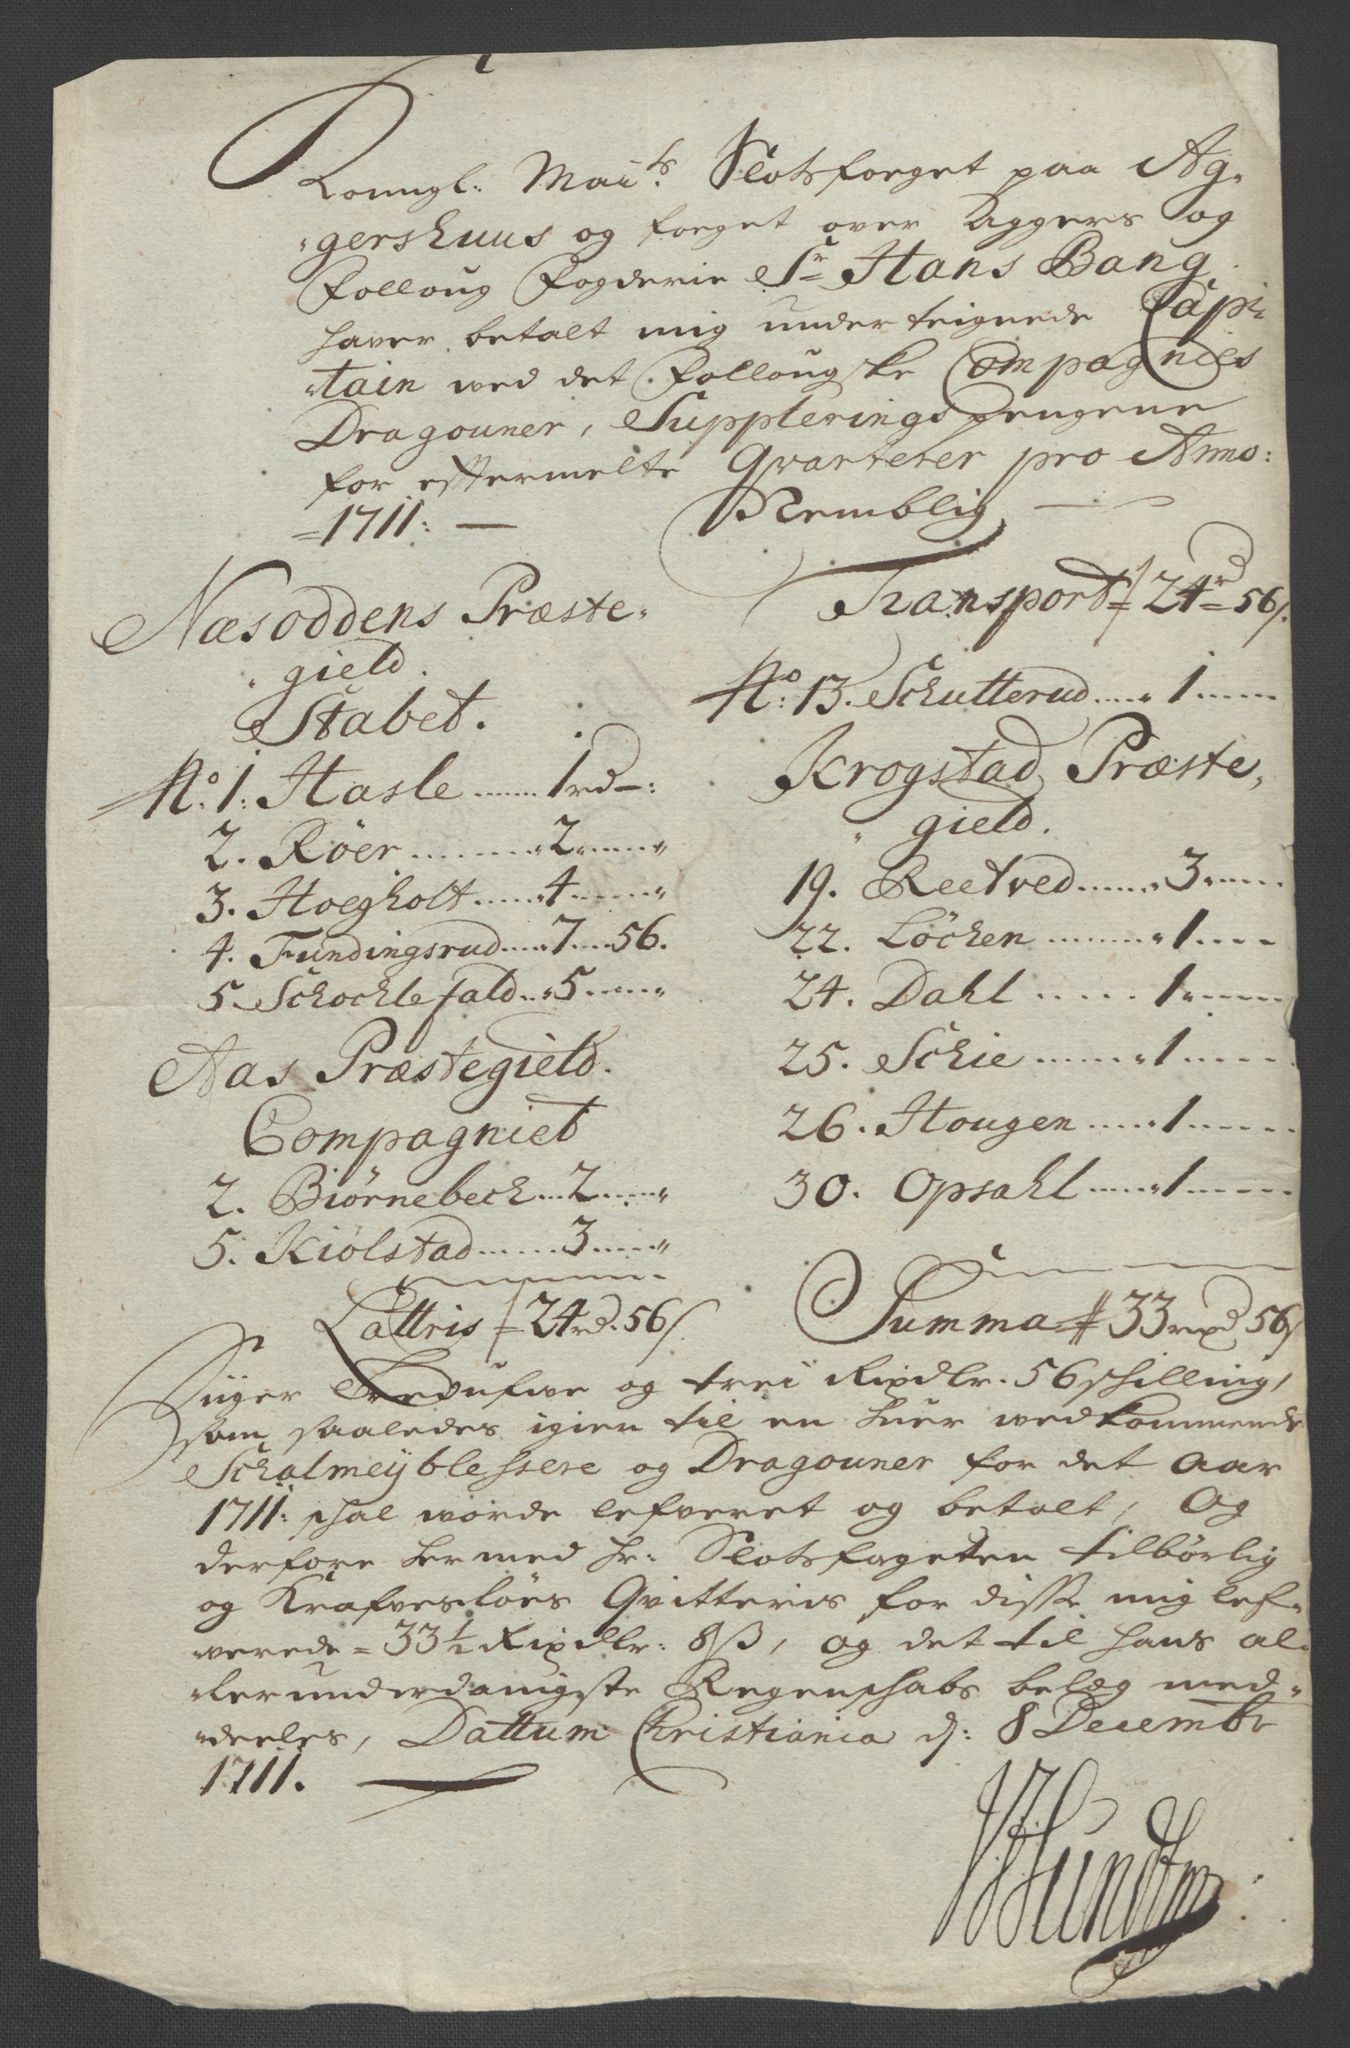 Konngl: Mai:ts Slotsfoeget paa Ag-
gershuus og foeget over Aggers og
Folloug Fogderie Sr Hans Bang
hawer betalt mig underteignede Capi-
tain wed det Follougske Compagnies
Dragouner, Suppleringspengene
for efftermelte Qvarterer pro Anno:
1711: Nemblig
Næsoddens Præste-
gield.
Stabet.
No: 1: Hasle 1 rd
2. Röer 2
3. Hoegholt 4
4. Fundingsrud 7 56.
5. Schochlefald 5
Aas Præstegield.
Compagniet
2. Biørnebech 2
5. Kiölstad 3
Lattris 24 rd. 56 s
Transport 24 rd 56 s.
No: 13. Schutterud 1
Krogstad Præste-
gield.
19. Reetved 3
22. Löchen 1
24. Dahl 1
25. Schie 1
26. Hougen 1
30. Opsahl 1
Summa 33 rixd 56 s
Siiger Tredufwe og trei Rixdlr. 56 schilling,
som saaledes igien til en huer wedkommende
Schalmeyblessere og Dragouner for det Aar
1711: schal worde lefveret og betalt, Og
derfore hermed hr: Slotsfogeten tilbørlig
og Krafvesløes Qvitteris for disse mig lef-
werede 33 1/2 Rixdlr: 8 ß, og det til hans al-
lerunderdanigste Regenschabs belæg med-
deeles, Dattum Christiania d: 8 Decembr
1711.